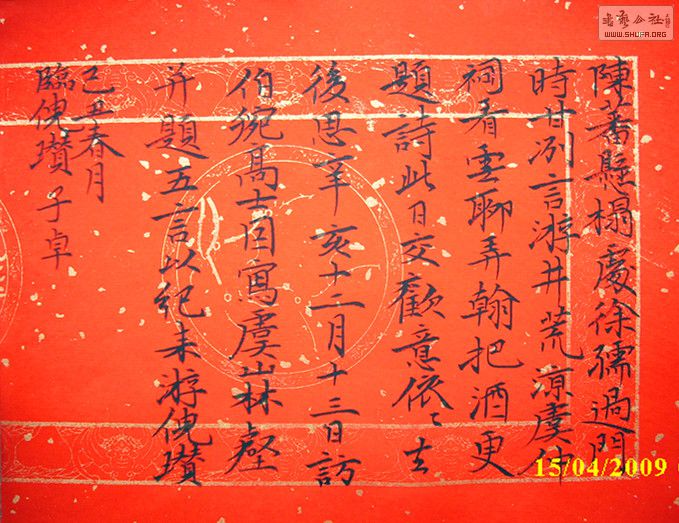 陳蕃懸榻處徐孺過門
時甘冽言游井荒涼虞仲
祠看雲聊弄翰把酒更
題詩此日交歡意依〻去
後思辛亥十二月十三日訪
伯琬高士因寫虞山林壑
并題五言以紀來游倪瓚
己丑春月
臨倪瓚 子卓
書藝公社
WWW.SHUFA.ORG
15/04/2009